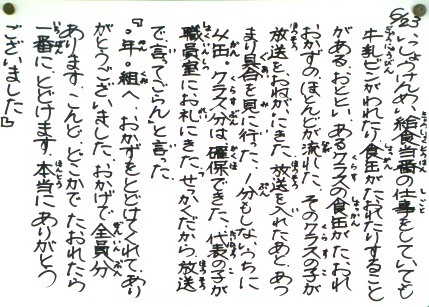 6/23 いっしょうけんめい給食当番の仕事をしていても
牛乳ビンがわれたり食缶がたおれたりすること
がある。おととい、あるクラスの食缶がたおれ
おかずのほとんどが流れた。そのクラスの子が
放送をおねがいにきた。放送を入れたあと、あつ
まり具合を見に行った。1分もしないうちに
クラス分は確保できた。代表の子が
職員室にお礼にきた。せっかくだから、放送
で言ってごらんと言った。
『○年○組へ。おかずをとどけてくれて、あり
がとうございました。おかげで全員分
あります。こんど、どこかでたおれたら
一番にとどけます。本当にありがとう
ございました』